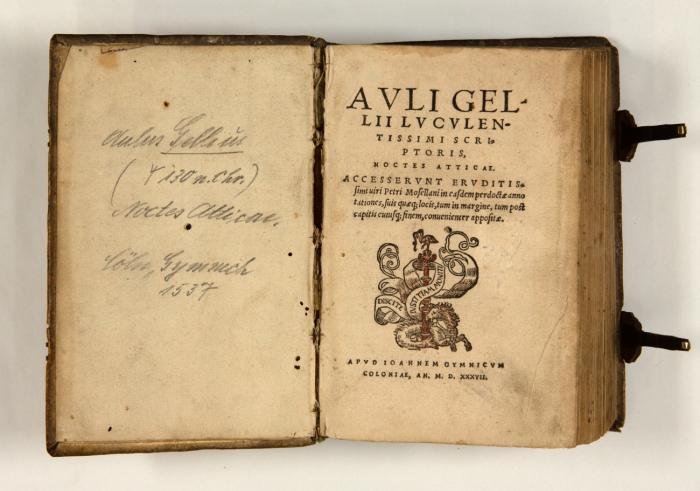 Aulus Gellius
( 130 n. Chr.)
Noctes Atticae.
Cöln, Gymnich
1537
AVLI GEL-
LII LVCVLEN-
TISSIMI SCRI-
PTORIS,
NOCTES ATTICAE.
ACCESSERVNT ERVDITIS-
simi uiri Petri Mosellani in easdem perdoctæ anno
tationes, suis quæq; locis, tum in margine, tum post
capitis cuiusq; finem, conuenienter appositæ.
DISCITE IVSTITIAM MONITI
APVD IOANNEM GYMNICVM
COLONIAE, AN. M. D. XXXVII.